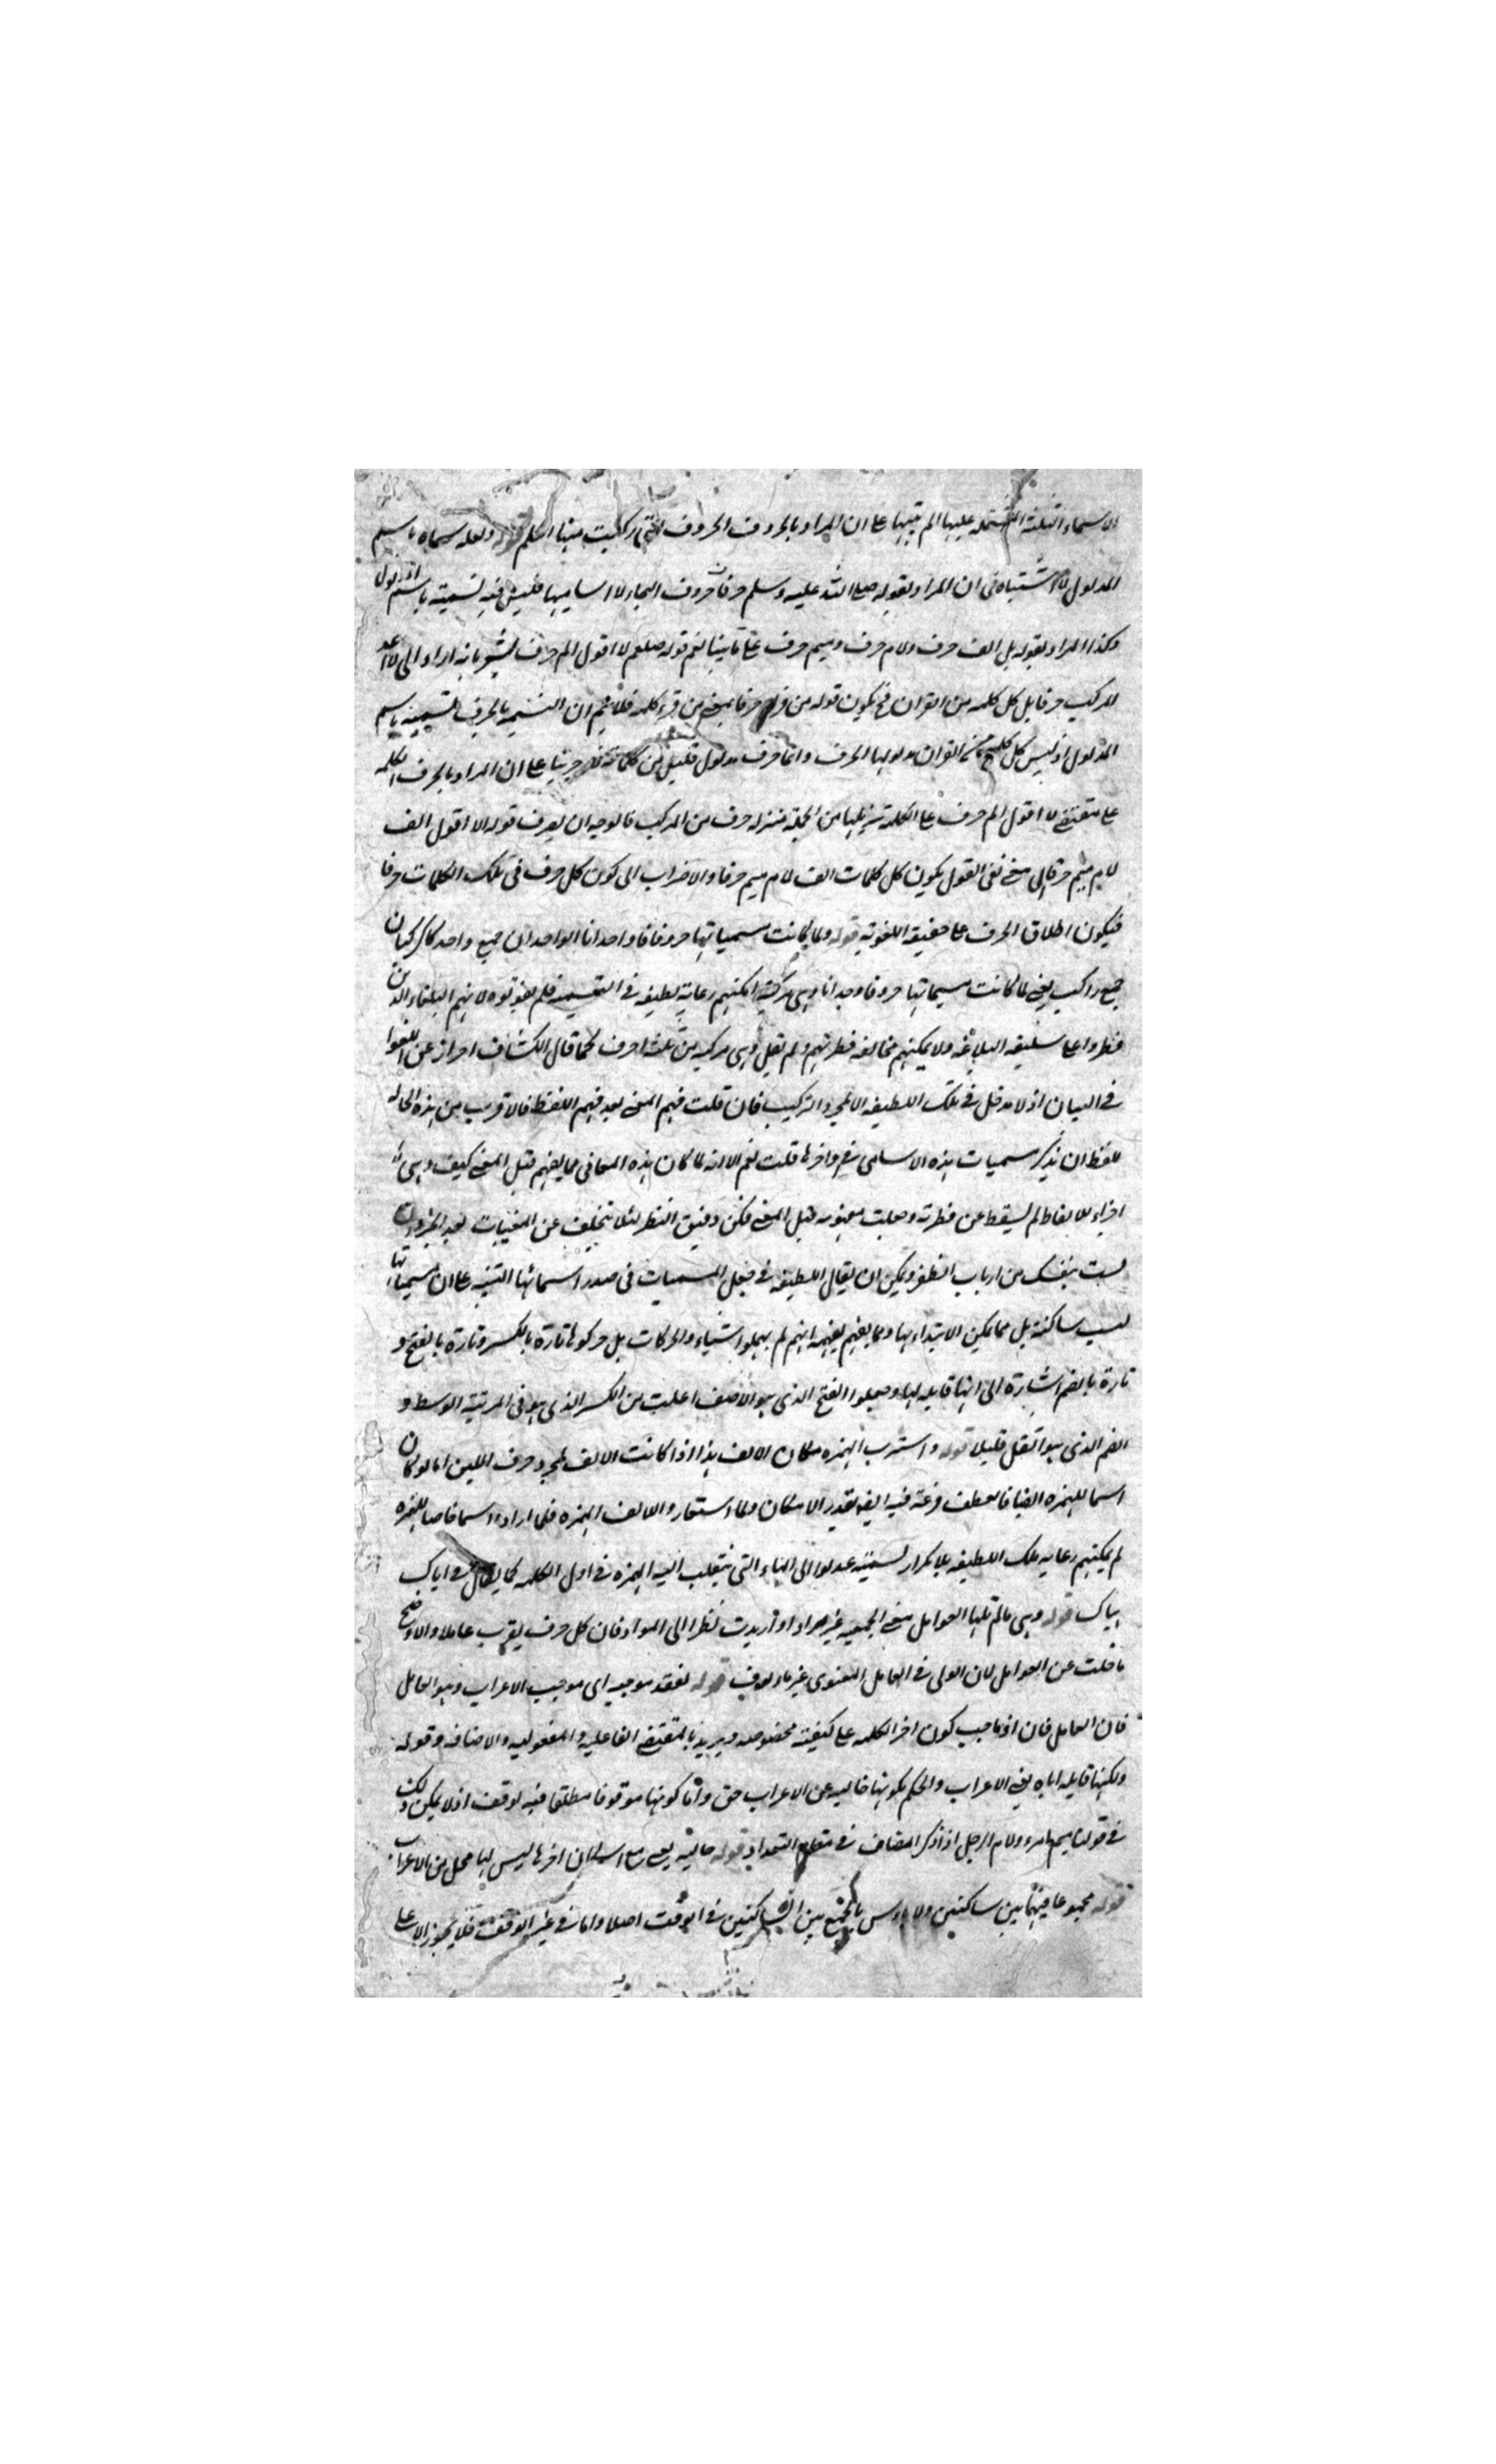 الاسماء الثلثة المشتمله عليها الم تنبيها على ان المراد بالحروف الحروف التى ركبت منها الكلم قوله ولعله سماه باسم
المدلول لا اشتباه فى ان المراد بقوله صلى الله عليه وسلم حرفا حروف التهجاء لا اساميها فليس فيه تسميته باسم المدلول
وكذا المراد بقوله بل الف حرف ولام حرف وميم حرف نعم قوله صلعم لا اقول الم حرف يشعر بانه اراد
المركب حرفا بل كل كلمه من القران فح يكون قوله من قرء حرفا بمعنى من قرء كلمه فلا نم ان التسميه بالحرف تسميته باسم
المدلول اذ ليس كل كلمة من القران مدلولها الحرف وانما حرف مدلول قليل من كلماته على ان المراد بالحرف الكلمه
على مقتضى لا اقول الم حرف على الكلمة تنزيلها من الجملة منزله حرف من المركب فالوجه ان يصرف قوله لا اقول الف
لام ميم حرف الى معنى نفى القول بكون كل كلمات الف لام ميم حرفا والاضراب الى كون كل حرف فى تلك الكلمات حرفا
فيكون اطلاق الحرف على حقيقة اللغوية قوله ولما كانت مسمياتها حروفا وحدانا الوحدان جمع واحد كالركبان
جمع راكب يعنى لما كانت مسمياتها حروفا وحدانا وهى مركبة امكنهم رعاية لطيفه فى التسميه فلم يفوتوه لانهم البلغاء الذين
فطروا على سليقه البلاغه ولا يمكنهم مخالفه فطرتهم ولم يقل وهى مركبه من ثلثه احرف كما قال الكشاف احراز عن اللغو
فى البيان اذ لا مدخل فى تلك اللطيفه الا لمجرد التركيب فان قلت فهم المعنى بعد فهم اللفظ فالاقرب من هذه الحاله
للفظ ان يذكر مسميات هذه الاسامى فى اواخرها قلت نعم الا انه لما كان هذه المعانى مما يفهم قبل المعنى كيف وهى
اجزاء للالفاظ لم يسقط عن فطرته وجعلت قبل المعنى فكن دقيق النظر لئلا تتخلف عن
لست بنفسك من ارباب النظر ويمكن ان يقال اللطيفه فى جعل المسميات فى صدر اسمائها التنبيه على ان مسمياتها
ليست ساكنة بل مما يمكن الابتداء بها ومما يفهم انهم لم يهملوا والحركات بل حركوها تارة بالكسر وتارة بالفتح و
تارة بالضم اشارة الى انها قابله لها وجعلوا الفتح الذى هو الاخف اغلب من الكسر الذى هو فى المرتبة الوسط و
الضم الذى هو اثقل قليلا قوله واستعيرت الهمزه مكان الالف هذا اذا كانت الالف لمجرد حرف اللين اما لو كان
اسما للهمزه ايضا فالعطف فيه بقدر الامكان ولما استعاروا للالف الهمزه فلما ارادوا اسما خاصا للهمزه
لم يمكنهم رعايه تلك اللطيفه بلا تكرار تسميته عدلوا الى الهاء التى تنقلب اليه الهمزه فى اول الكلمه كما يقال فى اياك
هياك قوله وهى مالم تلها العوامل معنى الجمعيه غير مراد او اريدت نظرا الى المواد فان كل حرف يقرب عاملا والاوضح
ما خلت عن العوامل لان الولى فى العامل المعنوى غير مالوف قوله لفقد موجبه اى موجب الاعراب وهو العامل
فان العامل كون اخر الكلمه على كيفية مخصوصه ويريد بالمقتضى الفاعليه والمفعوليه والاضافه وقوله
ولكنها قابله اياه يعنى الاعراب والحكم بكونها خاليه عن الاعراب حق واما كونها موقوفا مطلقا فيه توقف اذ لا يمكن ذلك
فى قولنا ميم امرء ولام الرجل اذا ذكر المضاف فى مقام التعداد قوله يعنى ان اخرها ليس لها محل من الاعراب
قوله مجموعا فيهما بين ساكنين ولا باس بالجمع بين الساكنين فى الوقف اصلا واما فى غير الوقف فلا يجوز الا على